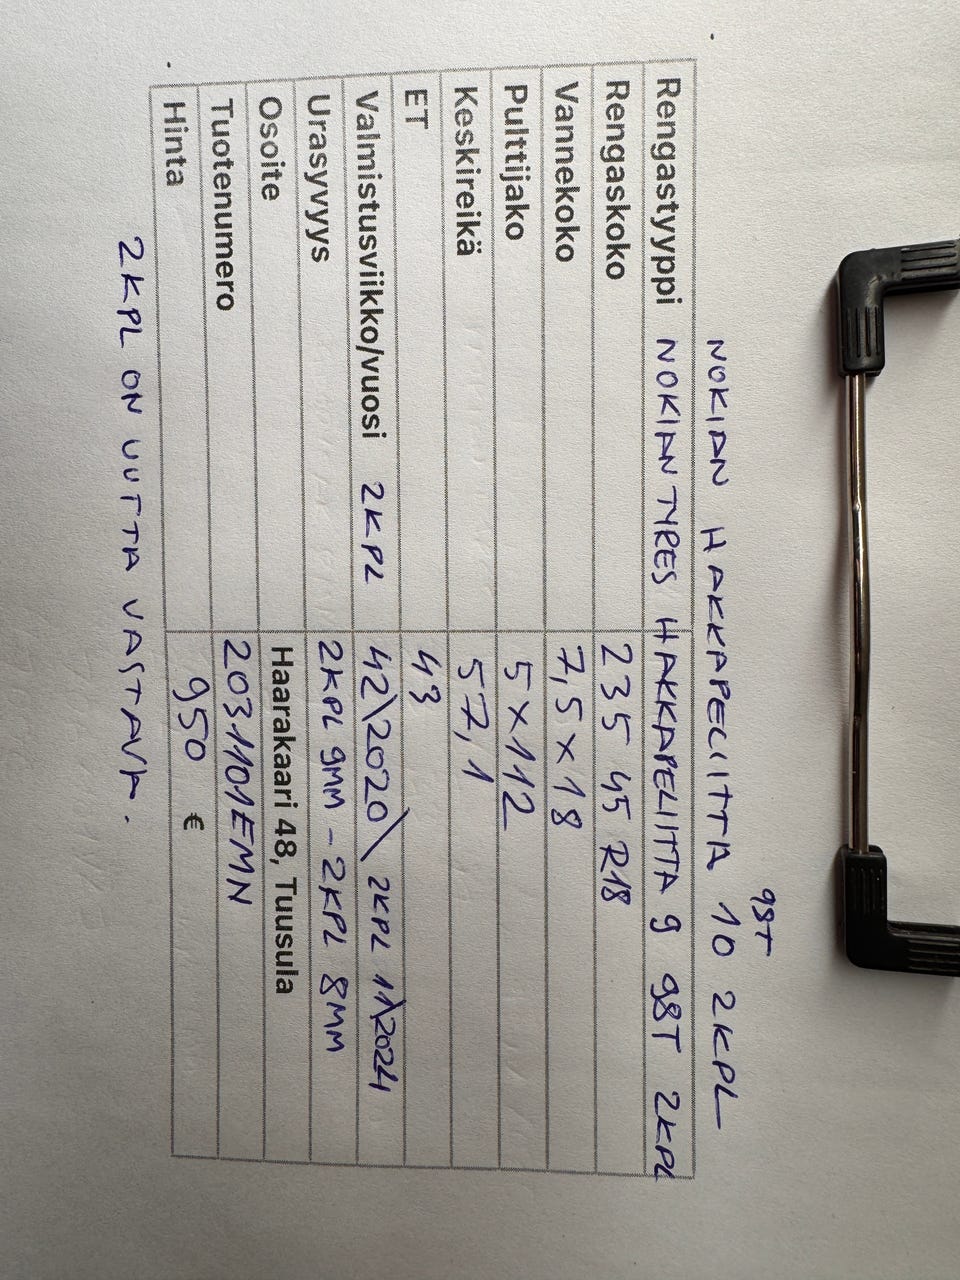 98T
NOKIAN HAKKAPELIITTA 10 2KPL
Rengastyyppi NOKIAN TYRES HAKKAPELIITTA 9 98T 2KPL
Rengaskoko 235 45 R18
Vannekoko 7,5 x 18
Pulttijako 5 x 112
Keskireikä 57,1
ET 43
Valmistusviikko/vuosi 2KPL 42\2020\ 2KPL 11\2024
Urasyvyys 2KPL 9MM - 2KPL 8MM
Osoite Haarakaari 48, Tuusula
Tuotenumero 2031101EMN
Hinta 950 €
2KPL ON UUTTA VASTAVA.